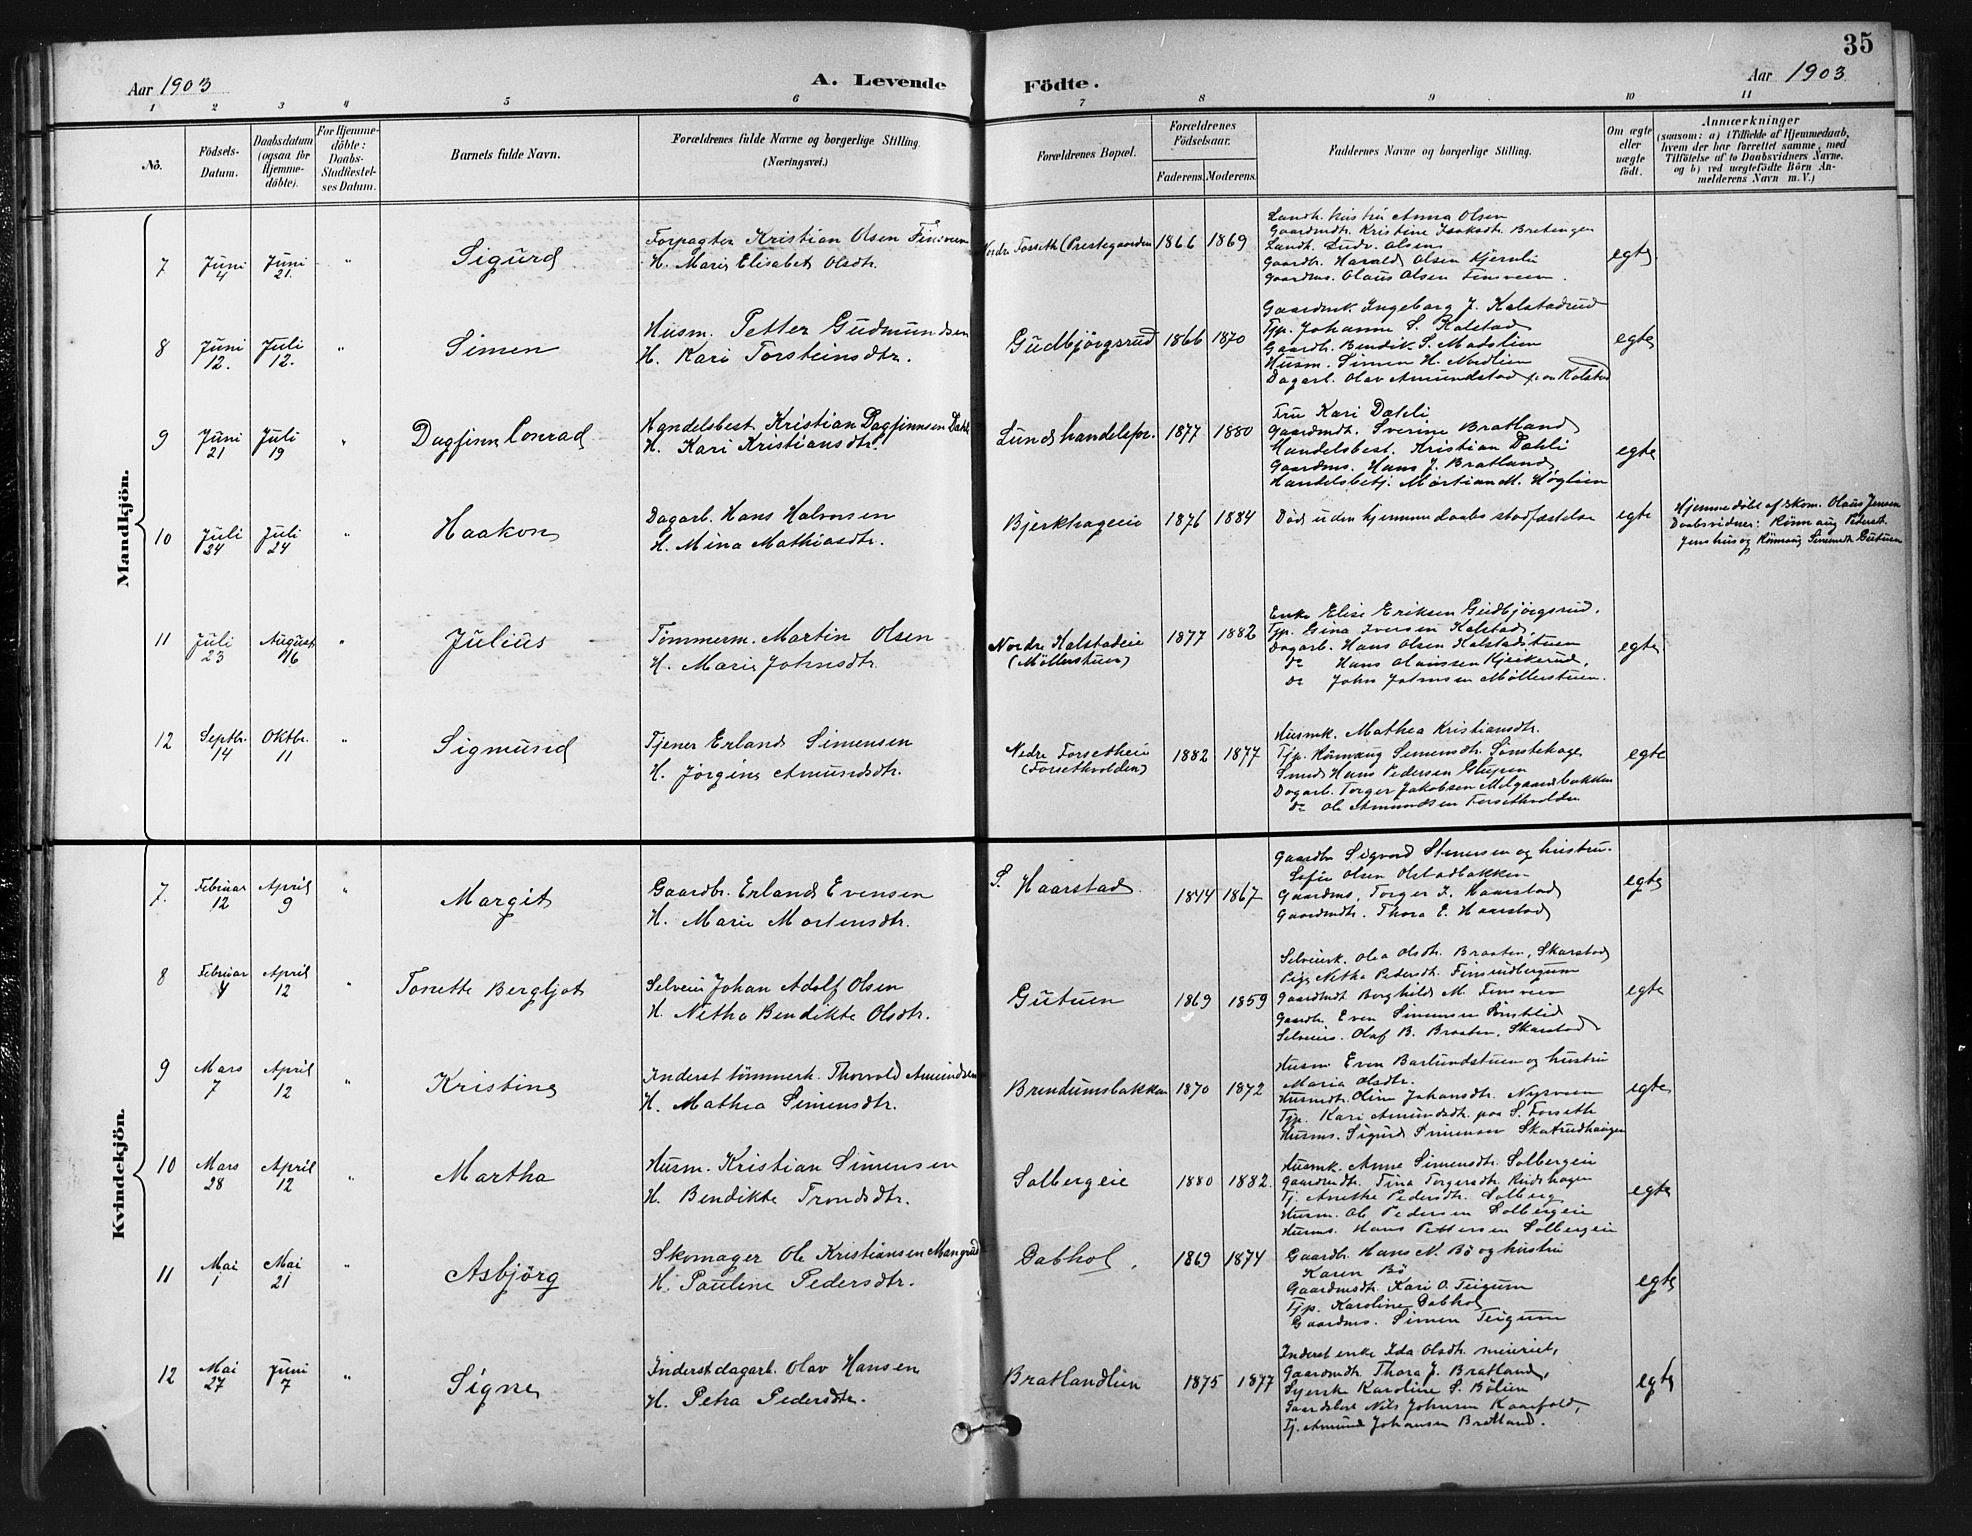 35
Aar 1903
A. Levende Födte.
Aar 1903
1 2 3 4 5 6 7 8 9 10 11
No.
Födsels-
Datum.
Daabsdatum
(ogsaa for
Hjemme-
döbte).
For Hjemme-
döbte:
Daabs-
Stadfæstel-
ses Datum.
Barnets fulde Navn.
Forældrenes fulde Navne og borgerlige Stilling.
(Næringsvei.)
Forældrenes Bopæl.
Forældrenes
Födselsaar.
Faderens. Moderens.
Faddernes Navne og borgerlige Stilling.
Om ægte
eller
uægte
født.
Anmærkninger
(saasom: a) i Tilfælde af Hjemmedaab,
hvem der har forrettet samme, med
Tilföielse af to Daabsvidners Navne,
og b) ved uægtefödte Börn An-
melderens Navn m. V.)
Mandkjön.
7
Juni
4
Juni
21.
"
Sigurd
Forpagter Kristian Olsen Finsveen
H. Marie Elisabet Olsdtr.
Nordre Forseth (Prestegaarden
1866 1869
Landh. hustru Anna Olsen
Gaardmdtr. Kristine Isaksdtr. Bretingen
Landh. Ludv. Olsen
Gaardbr. Harald Olsen Kjernli
Gaardms. Olaus Olsen Finsveen.
egte
8
Juni
12.
Juli
12.
"
Simen
Husm. Petter Gudmundsen
H. Kari Torsteinsdtr.
Gudbjörgsrud
1866 1870
Gaardmk. Ingeborg J. Kalstadrud
Tjp. Johanne S. Kalstad
Gaardbr. Bendik S. Madslien
Husm. Simen H. Nordlien
Dagarb. Olav Amundstad paa Kalstad
egte
9
Juni
21
Juli
19
"
Dagfinn Conrad
Handelsbest. Kristian Dagfinnsen Dahli
H. Kari Kristiansdtr.
Lunds handelspl.
1877 1880
Fru Kari Dæhli
Gaardmdtr. Sverine Bratland
Handelsbest. Kristian Dahli
Gaardms. Hans J. Bratland
Handelsbetj. Martian M. Høglien
egte
10
Juli
24
Juli
24
"
Haakon
Dagarb. Hans Halvorsen
H. Mina Mathiasdtr.
Bjerkhageie
1876 1884
Död uden hjemmedaabs stadfæstelse
egte
Hjemmedöbt af skom. Olaus Jensen
Daabsvidner: Rönnaug Pederst.
Jenshus og Rönnaug Simensdtr. Gutuen
11
Juli
23
August
16
"
Julius
Tömmerm. Martin Olsen
H. Marie Johnsdtr.
Nordre Kalstadeie
(Möllerstuen)
1877 1882
Enke Elise Eriksen Gudbjörgsrud.
Tjp. Gina Iversen Kalstad
Dagarb. Hans Olsen Kalstadstuen
do Hans Olaussen Kjeikerud,
do John Johnsen Möllerstuen.
egte
12
Septbr.
14
Oktbr.
11
"
Sigmund
Tjener Erland Simensen
H. Jörgine Amundsdtr.
Nedre Forsetheie
(Forsethvolden)
1882 1877
Husmk. Mathea Kristiansdtr.
Tjp. Rönnaug Simensdtr. Sönstehage
Smed Hans Pedersen Glupen
Dagarb. Torger Jakobsen Melgaardbakken
do Ole Amundsen Forsethvolden
egte
Kvindekjön.
7.
Februar
12
April
9
"
Margit
Gaardbr. Erland Evensen
H. Marie Mortensdtr.
S. Haarstad.
1844 1867
Gaardbr. Sigvard Stenersen og hustru
Sofie Olsen Olstadbakken
Gaardms. Torger E. Haarstad
Gaardmdtr. Thora E. Haarstad
egte
8
Februar
4
April
12
"
Tonette Bergljot
Selveier Johan Adolf Olsen
H. Netha Bendikte Olsdtr.
Gutuen
1869 1859
Selveierk. Olea Olsdtr. Braaten, Skarstad
Pige Netha Pedersdtr. Finsrudbergum
Gaardmdt Borghild M. Finsveen
Gaardbr. Even Simensen Sönstlid
Selveiers. Olaf B. Braaten, Skarstad
egte
9
Mars
7
April
12
"
Kristine
Inderst tömmerh. Thorvald Amundsen
H. Mathea Simensdtr.
Brendumsbakken
1870 1872
Husm Even Barlundstuen og hustru
Maria Olsdtr.
Husmdtr. Oline Johansdtr. Nyrveen
Tjp. Kari Amundsdtr. paa S. Forseth
Husms. Sigurd Simensen Skatrudhaugen
egte
10
Mars
28
April
12
"
Martha
Husm. Kristian Simensen
H. Bendikte Trondsdtr.
Solbergeie
1880 1882.
Husmk. Anne Simensdtr. Solbergeie
Gaardmdtr. Tina Torgersdtr. Rudshagen
Tj. Anethe Pedersdtr. Solberg
Husm. Ole Pedersen Solbergeie
Husms. Hans Pettersen Solbergeie
egte
11
Mai
1
Mai
21
"
Asbjörg
Skomager Ole Kristiansen Mangrud
H. Pauline Pedersdtr.
Dabhol.
1869 1874
Gaardbr. Hans N. Bö og hustru
Karen Bö
Gaardmsdtr. Kari O. Teigum
Tjp. Karoline Dabhol
Gaardms. Simen Teigum
egte
12
Mai
27
Juni
7
"
Signe
Inderst dagarb. Olav Hansen
H. Petra Pedersdtr.
Bratlandlien
1875 1877
Inderst enke Ida Olsdtr. meieriet,
Gaardmdtr. Thora J. Bratland,
Syersk Karoline S. Bölien
Gaardbest Nils Johnsen Kaarfald,
Tj. Amund Johansen Bratland.
egte